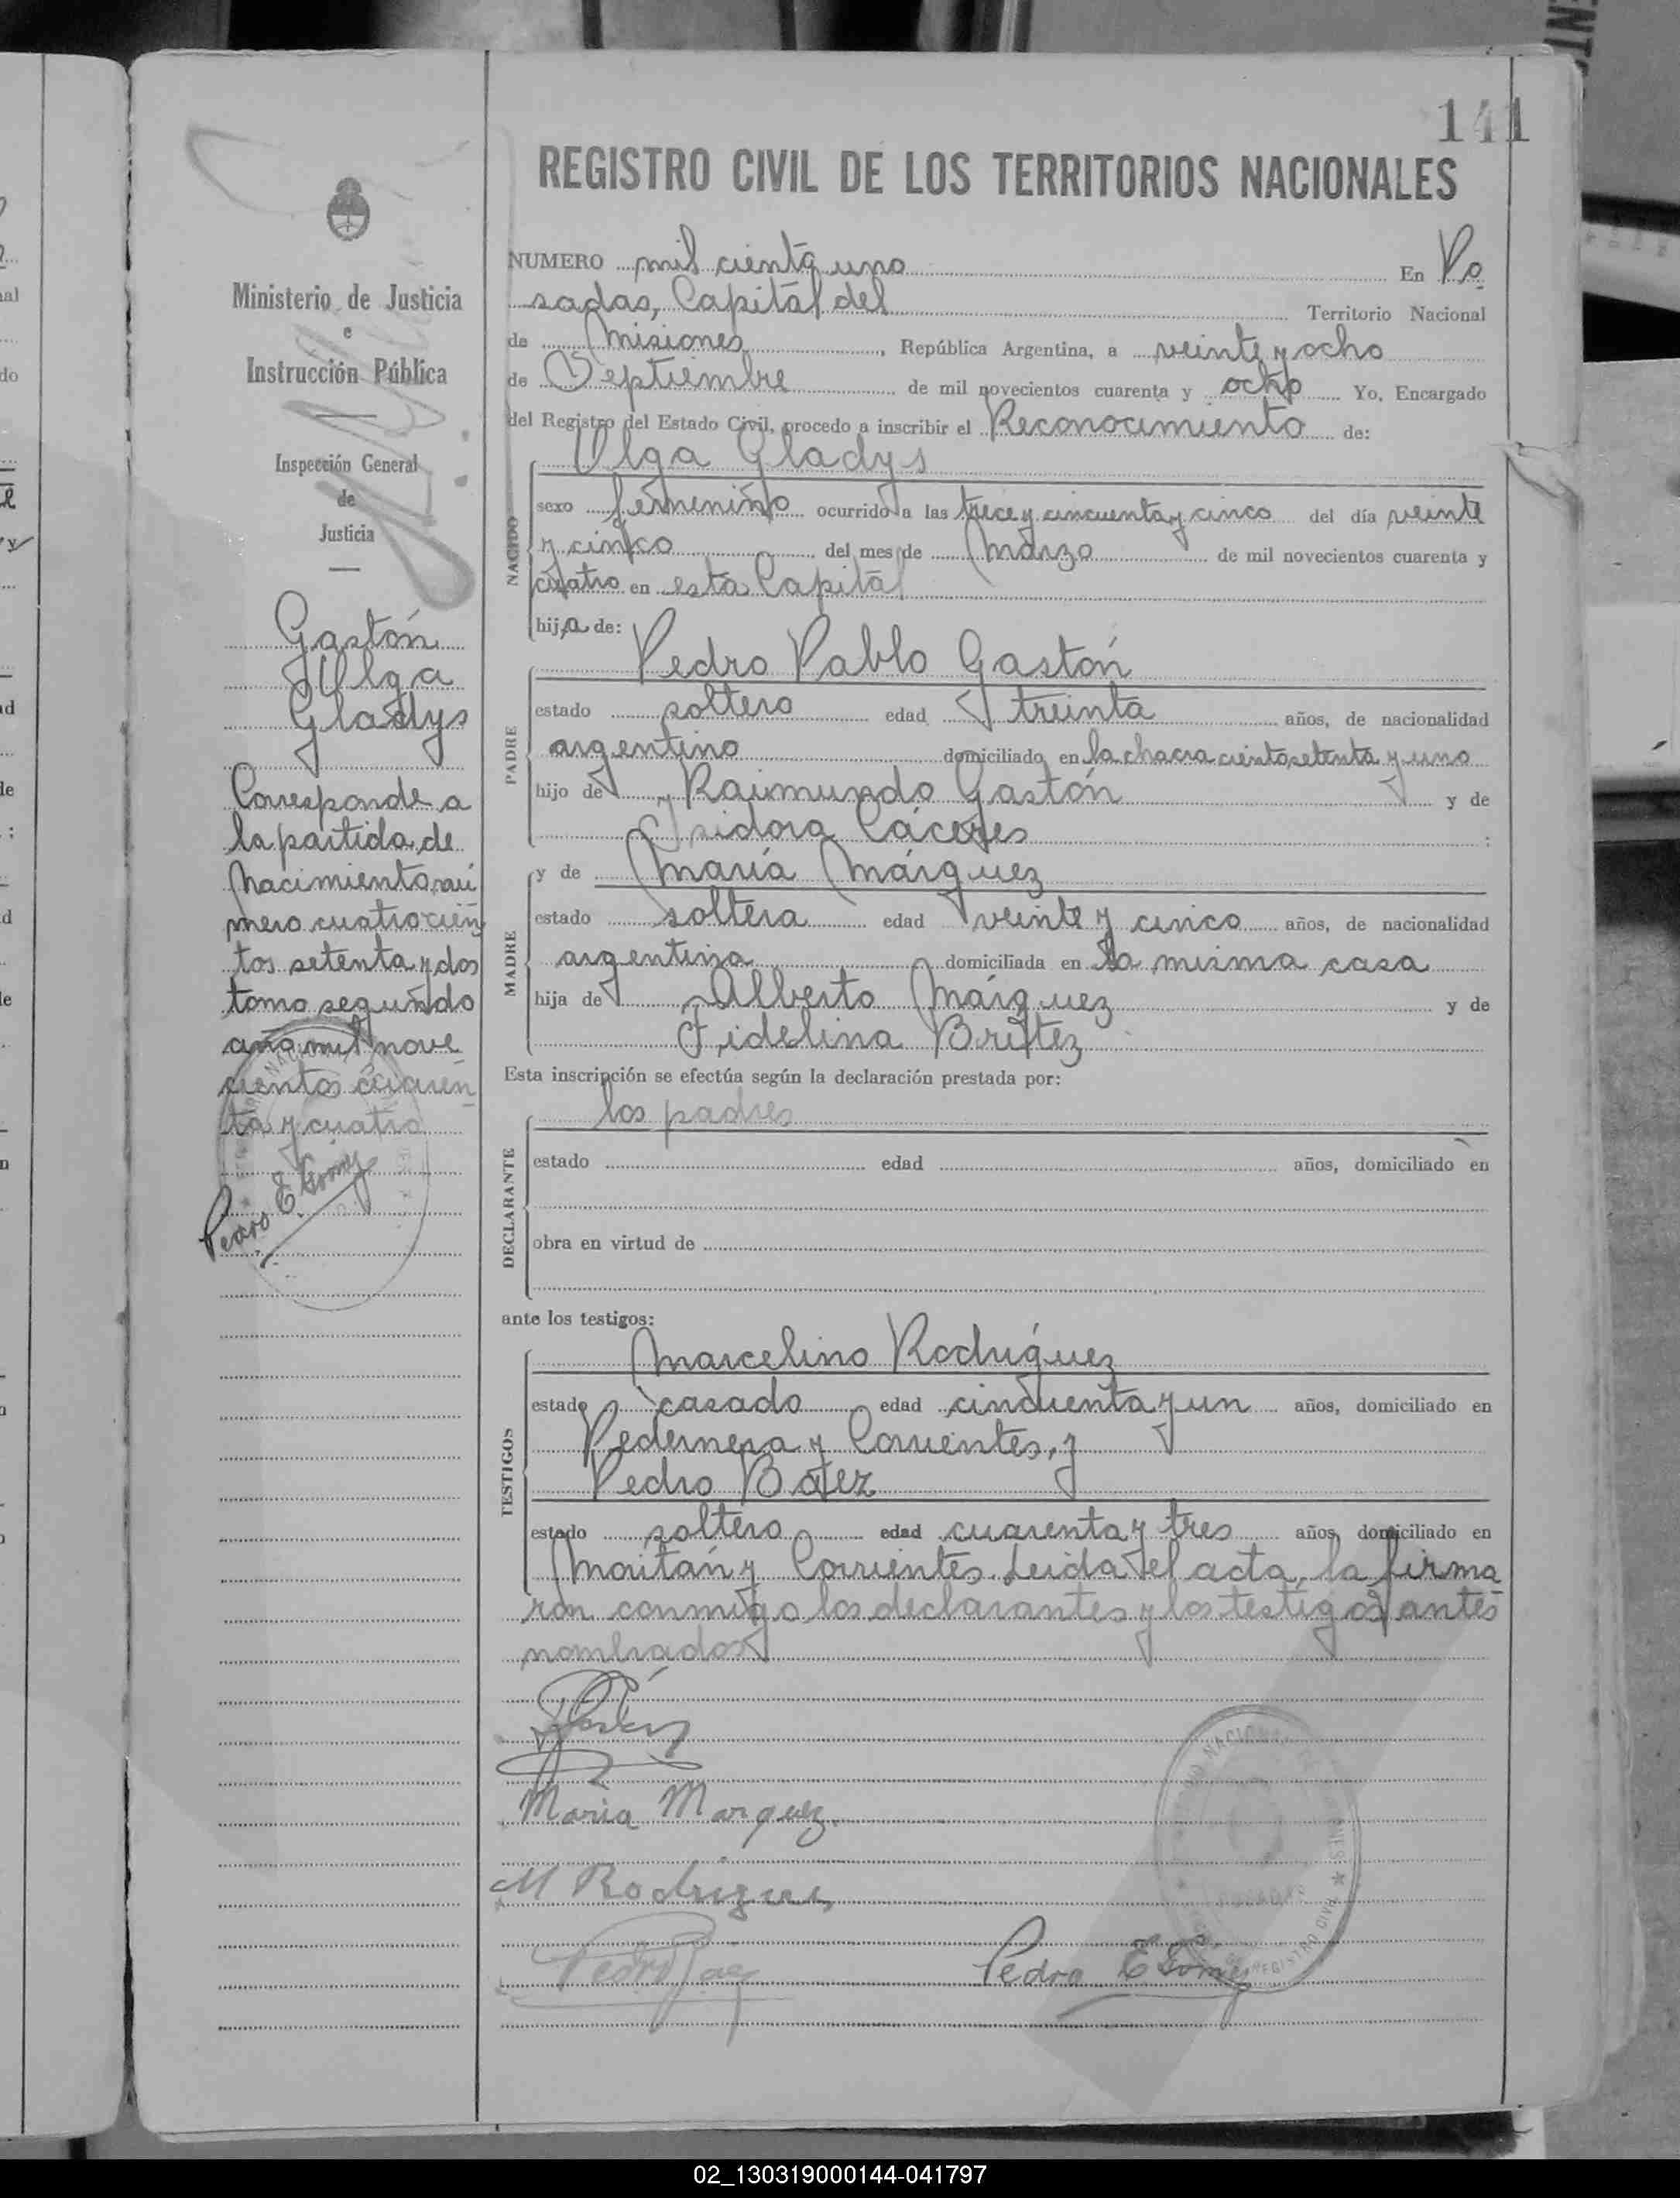 141
REGISTRO CIVIL DE LOS TERRITORIOS NACIONALES
Ministerio de Justicia
e
Instrucción Pública
Inspección General
de
Justicia
Gastón
Olga
Gladys
Corresponde a
la partida de
Nacimiento nú
mero cuatrocien
tos setenta y dos
tomo segundo
año mil nove
cientos cuaren
ta y cuatro
Pedro E Gomez
NUMERO mil ciento uno En Po
sadas, Capital del Territorio Nacional
de Misiones, República Argentina, a veinte y ocho
de Septiembre de mil novecientos cuarenta y ocho Yo, Encargado
del Registro del Estado Civil, procedo a inscribir el Reconocimiento de:
NACIDO
Olga Gladys
sexo femenino ocurrido a las trece y cincuenta y cinco del día veinte
y cinco del mes de Marzo de mil novecientos cuarenta y
cuatro en esta Capital
hija de:
PADRE
Pedro Pablo Gastón
estado soltero edad treinta años, de nacionalidad
argentino domiciliado en la chacra ciento setenta y uno
hijo de Raimundo Gastón y de
Isidora Cáceres :
MADRE
y de María Márquez
estado soltera edad veinte y cinco años, de nacionalidad
argentina domiciliada en la misma casa
hija de Alberto Márquez y de
Fidelina Britez
Esta inscripción se efectúa según la declaración prestada por:
DECLARANTE
los padres
estado edad años, domiciliado en
obra en virtud de
ante los testigos:
TESTIGOS
Marcelino Rodríguez
estado casado edad cincuenta y un años, domiciliado en
Pedernera y Corrientes, y
Pedro Báez
estado soltero edad cuarenta y tres años, domiciliado en
Moritán y Corrientes. Leida el acta, la firma
ron conmigo los declarantes y los testigos antes
nombrados
Maria Marquez
M Rodriguez
Pedro Baez
Pedro E Gomez
POSADAS
REGISTRO CIVIL
02_130319000144-041797